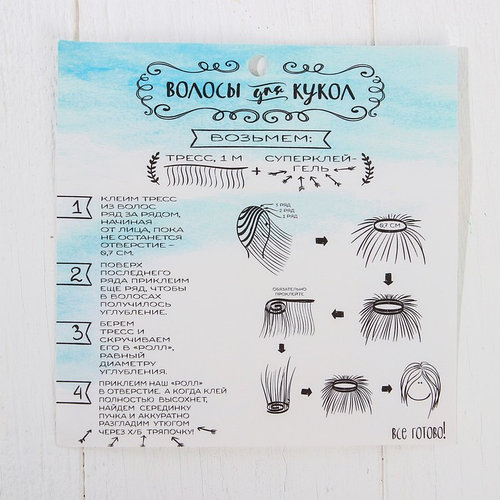 ВОЛОСЫ для КУКОЛ
ВОЗЬМЕМ:
ТРЕСС, 1 М + СУПЕРКЛЕЙ-
ГЕЛЬ
1 КЛЕИМ ТРЕСС
ИЗ ВОЛОС
РЯД ЗА РЯДОМ,
НАЧИНАЯ
ОТ ЛИЦА, ПОКА
НЕ ОСТАНЕТСЯ
ОТВЕРСТИЕ –
0,7 СМ.
2 ПОВЕРХ
ПОСЛЕДНЕГО
РЯДА ПРИКЛЕИМ
ЕЩЕ РЯД, ЧТОБЫ
В ВОЛОСАХ
ПОЛУЧИЛОСЬ
УГЛУБЛЕНИЕ.
3 БЕРЕМ
ТРЕСС И
СКРУЧИВАЕМ
ЕГО В «РОЛЛ»,
РАВНЫЙ
ДИАМЕТРУ
УГЛУБЛЕНИЯ.
4 ПРИКЛЕИМ НАШ «РОЛЛ»
В ОТВЕРСТИЕ. А КОГДА КЛЕЙ
ПОЛНОСТЬЮ ВЫСОХНЕТ,
НАЙДЕМ СЕРЕДИНКУ
ПУЧКА И АККУРАТНО
РАЗГЛАДИМ УТЮГОМ
ЧЕРЕЗ Х/Б ТРЯПОЧКУ!
3 РЯД
2 РЯД
1 РЯД
0,7 СМ
ОБЯЗАТЕЛЬНО
ПРОКЛЕЙТЕ
ВСЕ ГОТОВО!